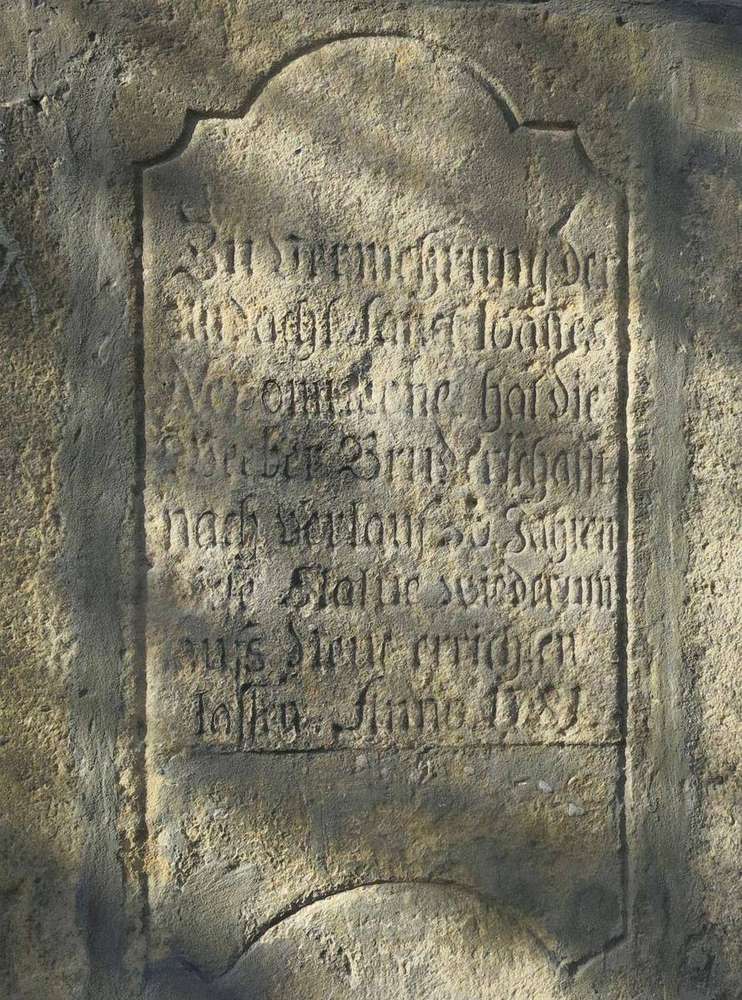 Zu Vermehrung der
Andacht Sanct Joanes
Nepomucene hat die
Weeber Bruderschafft
nach verlauf Jahren
Statue wiederum
aufs Neue errichten
lassen. Anno. 1781.